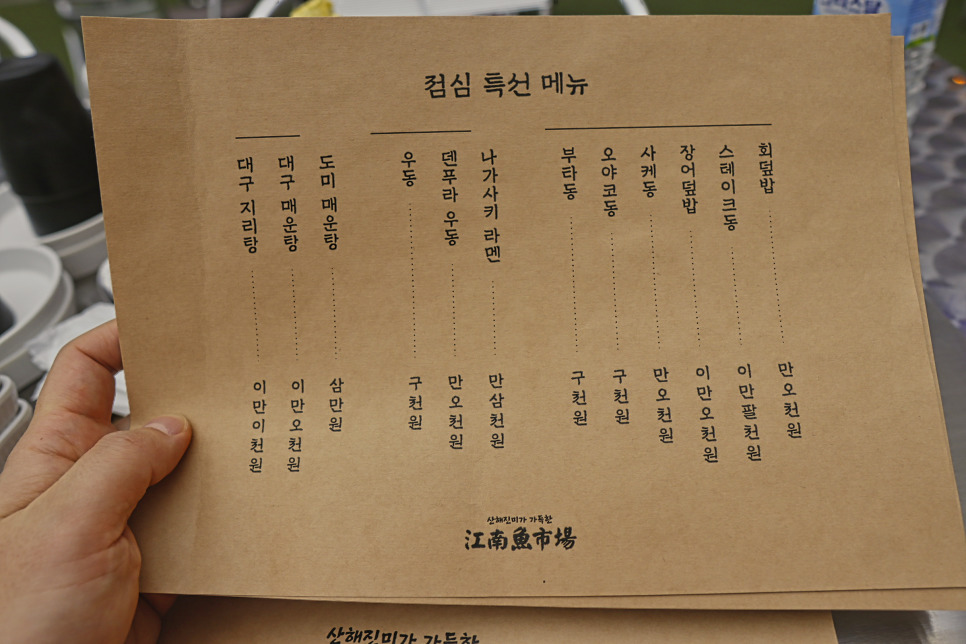 점심 특선 메뉴
회덮밥 만오천원
스테이크동 이만팔천원
장어덮밥 이만오천원
사케동 만오천원
오야코동 구천원
부타동 구천원
나가사키 라멘 만삼천원
덴푸라 우동 만오천원
우동 구천원
도미 매운탕 삼만원
대구 매운탕 이만오천원
대구 지리탕 이만이천원
산해진미가 가득한
江南魚市場
산해진미가 가득한